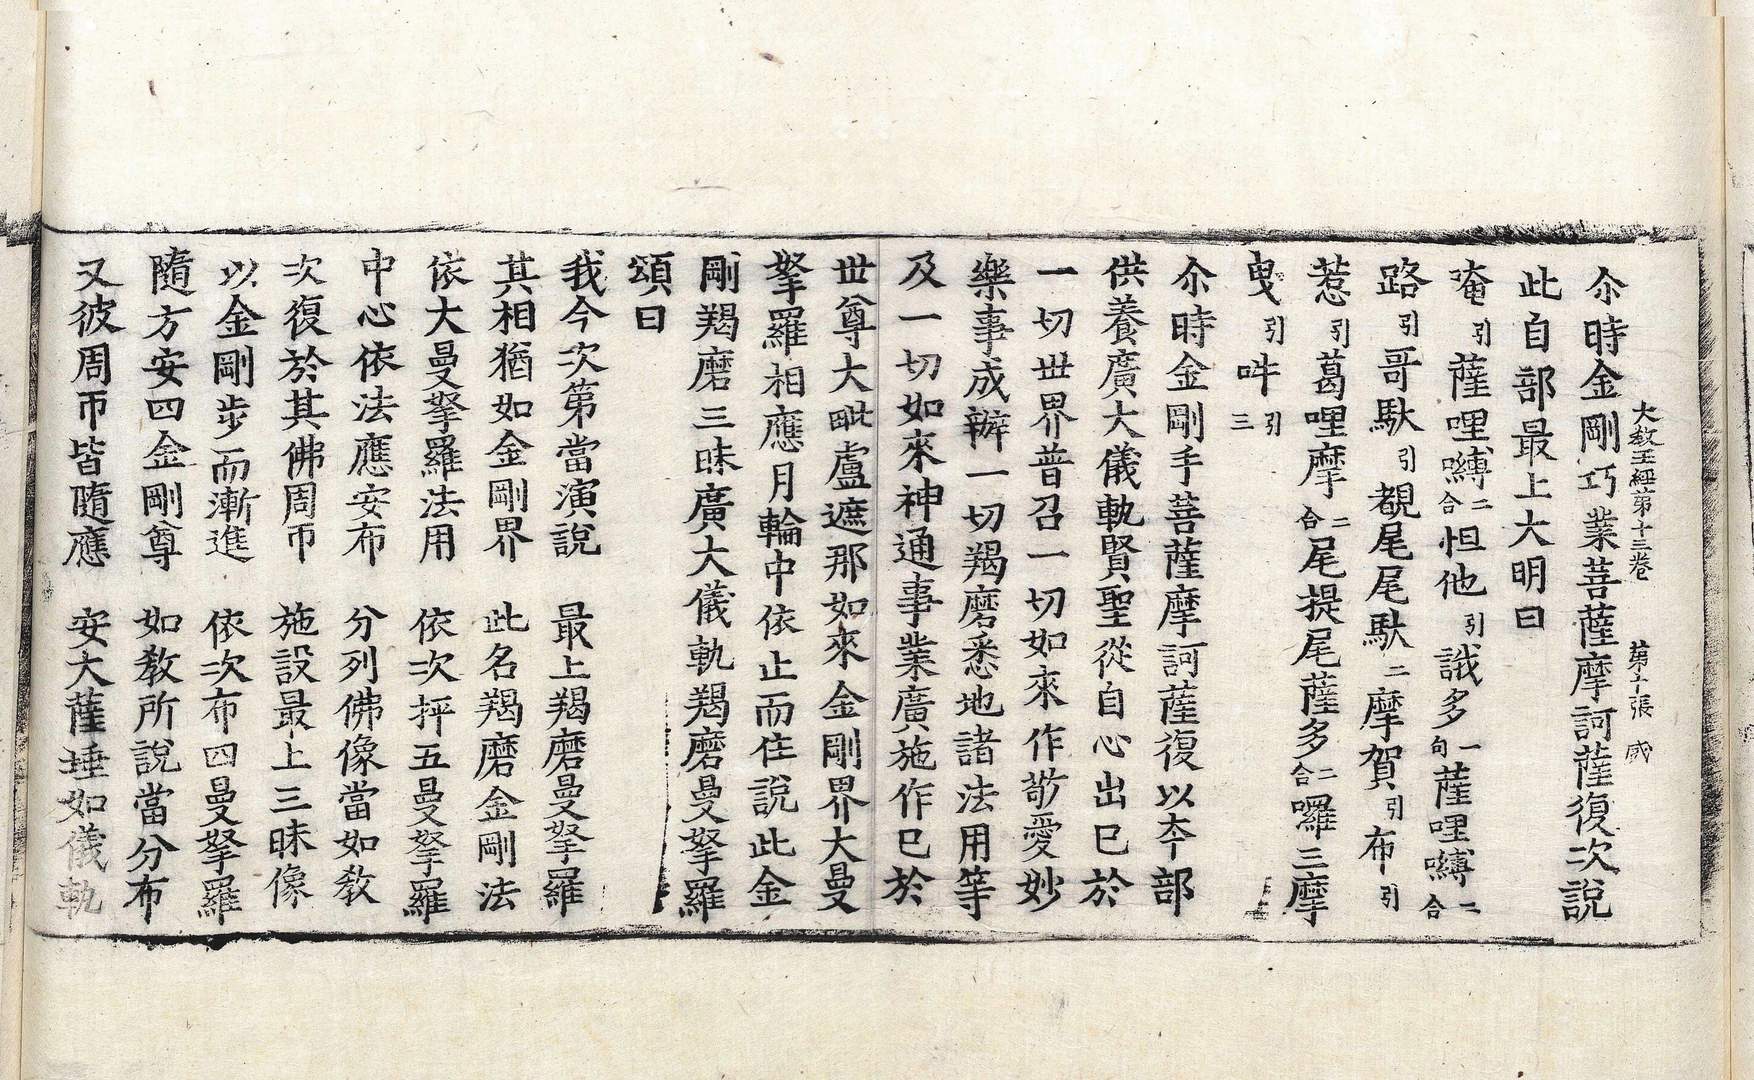 大教王經第十三卷　第十張　咸
尒時金剛巧業菩薩摩訶薩復次說
此自部最上大明曰
唵引薩哩嚩二合怛他引誐多一句薩哩嚩二合
路引哥馱引覩尾尾馱二摩賀引布引
惹引葛哩摩二合尾提尾薩多二合囉三摩
曳引吽引三
尒時金剛手菩薩摩訶薩復以夲部
供養廣大儀軌賢聖從自心出已於
一切世界普召一切如來作敬愛妙
樂事成辦一切羯磨悉地諸法用等
及一切如來神通事業廣施作已於
世尊大毗盧遮那如來金剛界大曼
拏羅相應月輪中依止而住說此金
剛羯磨三昧廣大儀軌羯磨曼拏羅
頌曰
我今次第當演說　最上羯磨曼拏羅
其相猶如金剛界　此名羯磨金剛法
依大曼拏羅法用　依次抨五曼拏羅
中心依法應安布　分列佛像當如教
次復於其佛周帀　施設最上三昧像
以金剛步而漸進　依次布四曼拏羅
隨方安四金剛尊　如教所說當分布
又彼周帀皆隨應　安大薩埵如儀軌